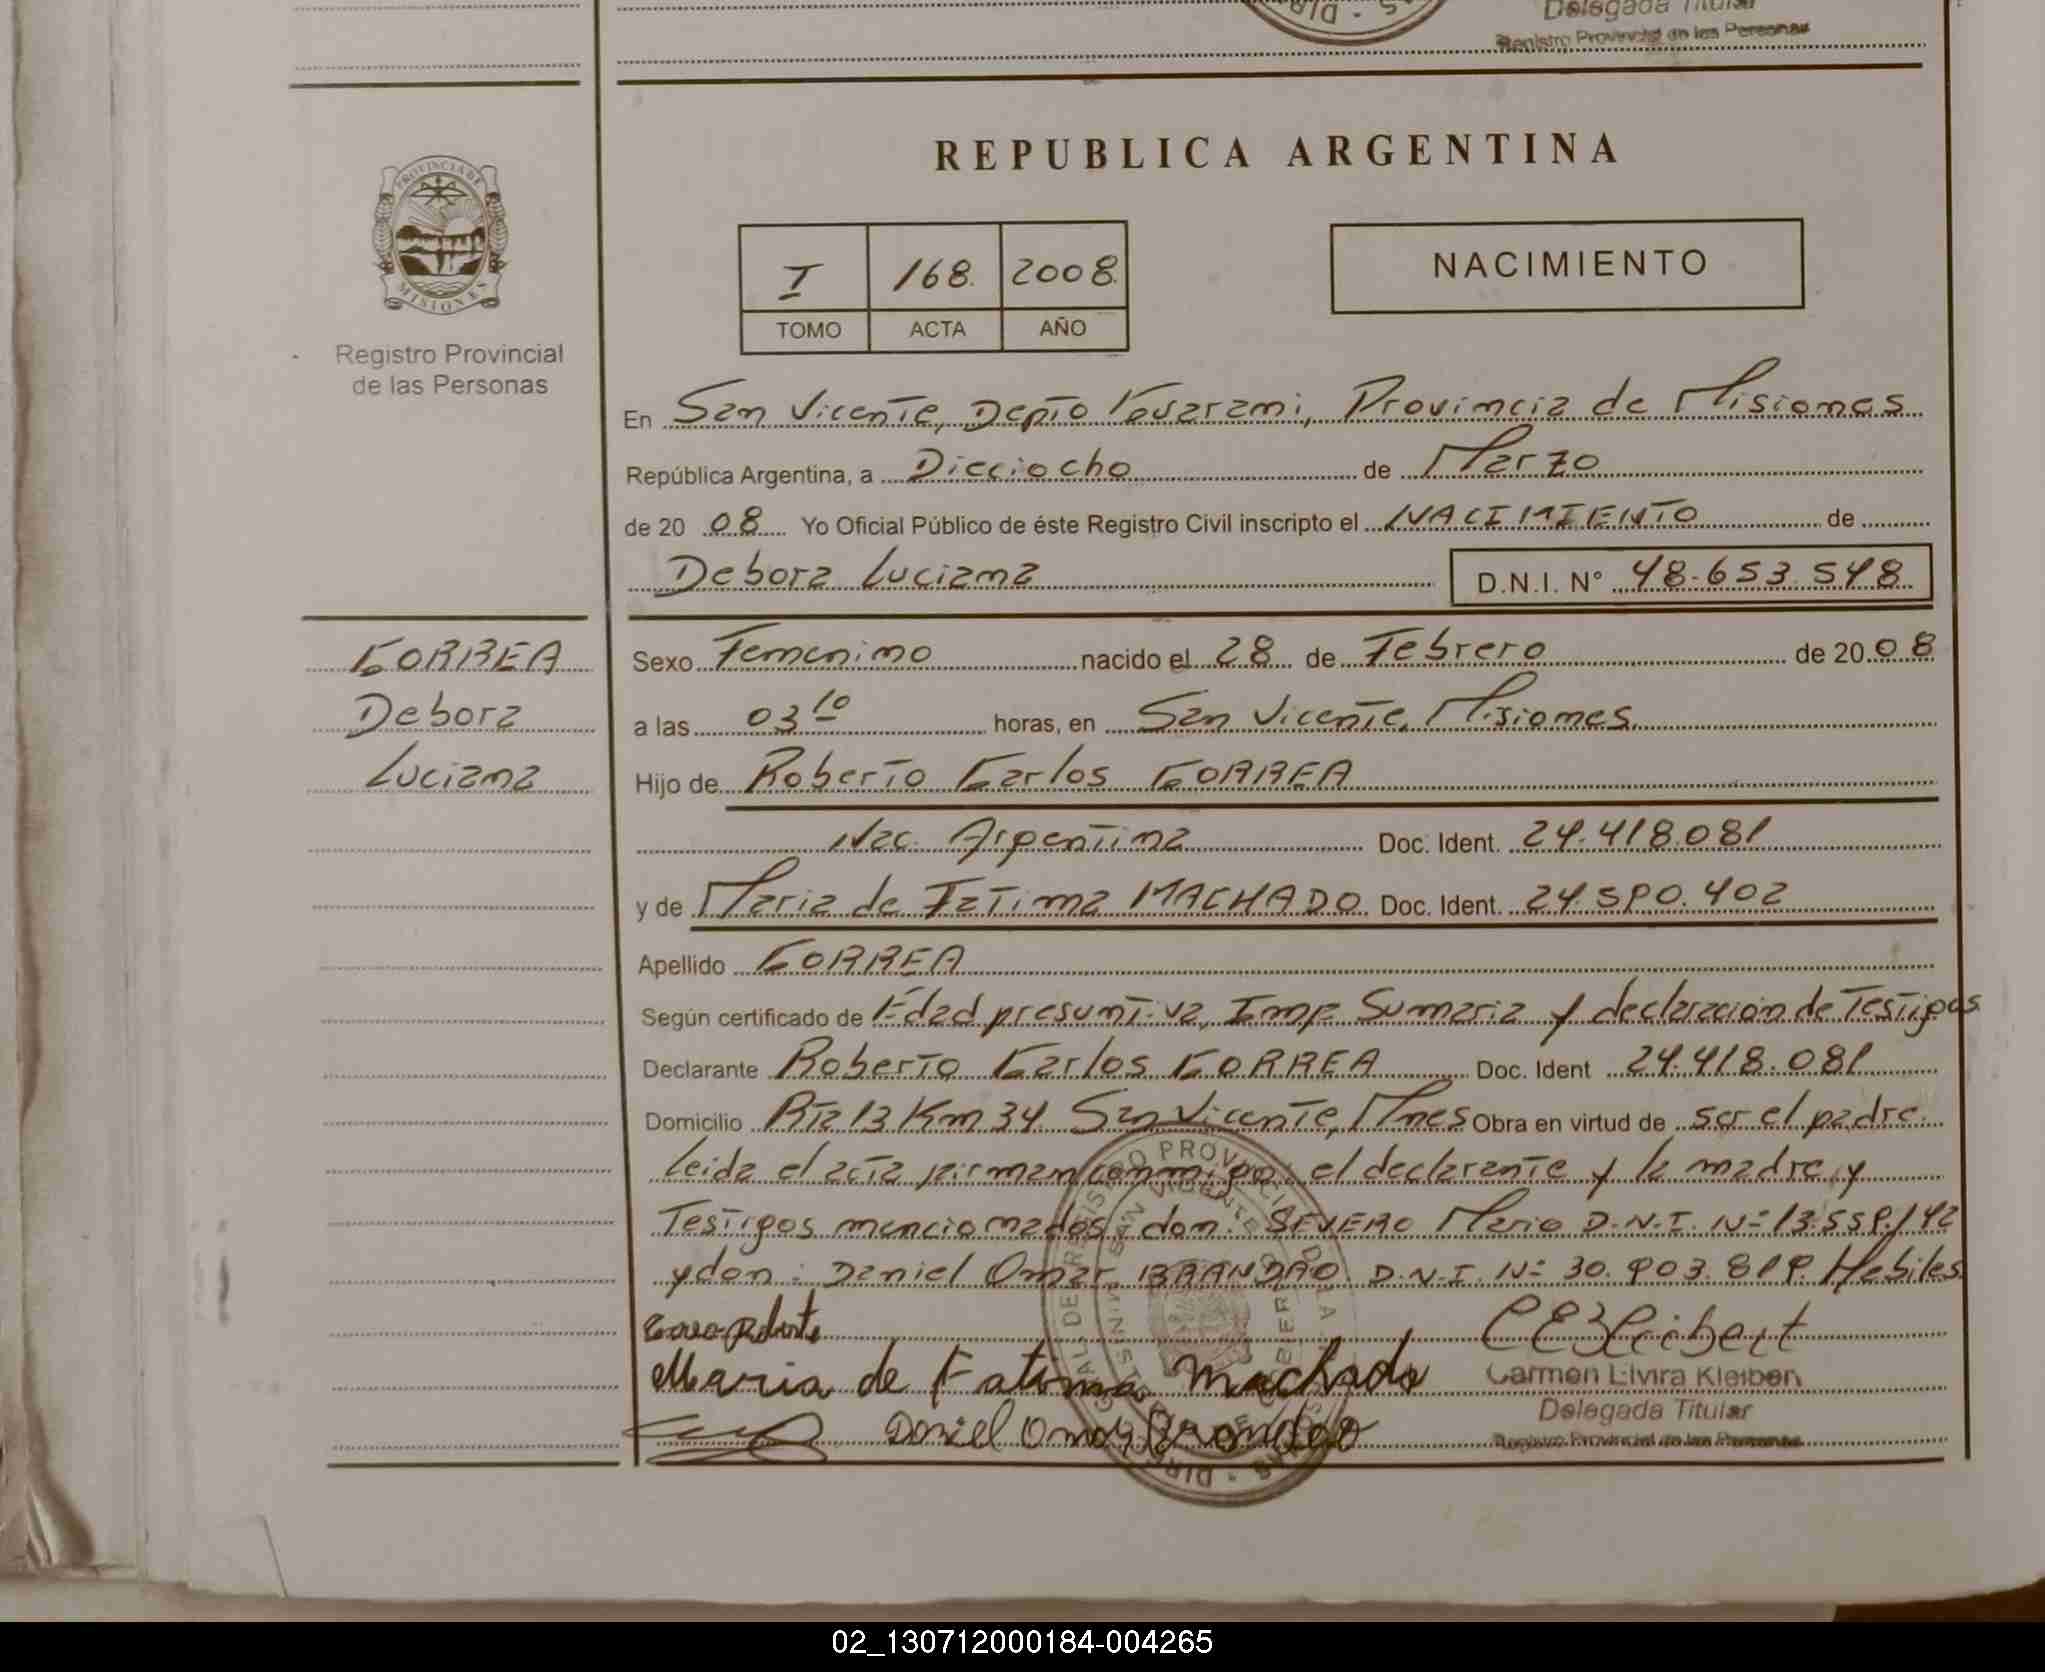 Delegada Titular
Registro Provincial de las Personas
PROVINCIA DE
MISIONES
Registro Provincial
de las Personas
REPUBLICA ARGENTINA
I 168. 2008.
TOMO ACTA AÑO
NACIMIENTO
En San Vicente, Depto Guarani, Provincia de Misiones
República Argentina, a Dieciocho de Marzo
de 20 08 Yo Oficial Público de éste Registro Civil inscripto el NACIMIENTO de
Debora Luciana D.N.I. N° 48.653.548
CORREA
Debora
Luciana
Sexo Femenino nacido el 28 de Febrero de 20 08
a las 03 10 horas, en San Vicente, Misiones
Hijo de Roberto Carlos CORREA
Nac. Argentina Doc. Ident. 24.418.081
y de Maria de Fatima MACHADO Doc. Ident. 24.590.402
Apellido CORREA
Según certificado de Edad presuntiva, Inf. Sumaria y declaración de Testigos
Declarante Roberto Carlos CORREA Doc. Ident 24.418.081
Domicilio Rta 13 Km 34 San Vicente, Mnes Obra en virtud de ser el padre.
Leida el acta firman conmigo el declarante y la madre, y
Testigos mencionados don: SEVERO Mario D.N.I. N° 13.559.142
y don: Daniel Omar BRANDAO. D.N.I. N° 30.903.819. Habiles
Maria de Fatima Machado
Daniel Omar Brandao
Carmen Elvira Kleibert
Delegada Titular
Registro Provincial de las Personas
02_130712000184-004265